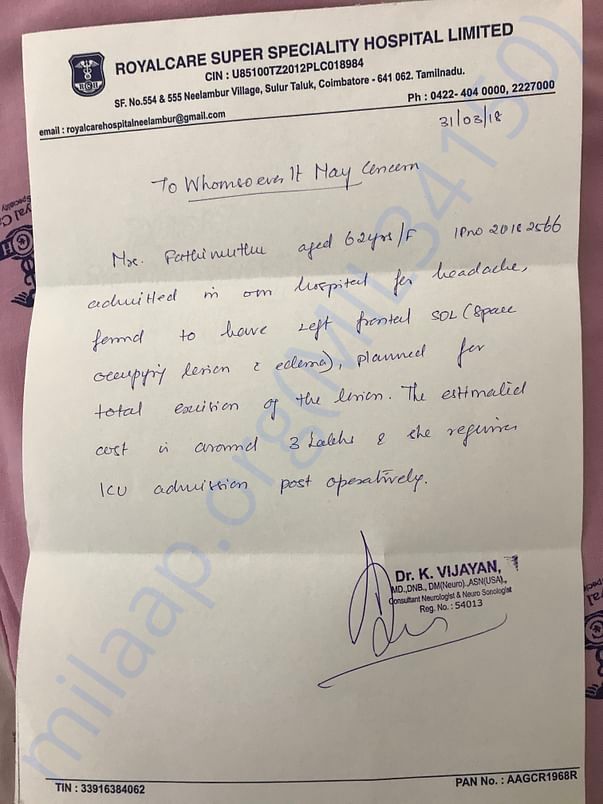 ROYALCARE SUPER SPECIALITY HOSPITAL LIMITED
CIN : U85100TZ2012PLC018984
SF. No.554 & 555 Neelambur Village, Sulur Taluk, Coimbatore - 641 062. Tamilnadu.
email : royalcarehospitalneelambur@gmail.com
Ph : 0422- 404 0000, 2227000
31/03/18
To Whomsoever It May Concern
Mrs. Pathimuthu aged 62yrs/F IPno 2018 2566
admitted in our hospital for headache,
found to have Left frontal SOL (Space
occupying lesion c edema), planned for
total excision of the lesion. The estimated
cost is around 3 Lakhs & she requires
ICU admission post operatively.
Dr. K. VIJAYAN,
MD.,DNB., DM(Neuro).,ASN(USA).,
Consultant Neurologist & Neuro Sonologist
Reg. No. : 54013
TIN : 33916384062
PAN No. : AAGCR1968R
milaap.org(MIL34150)